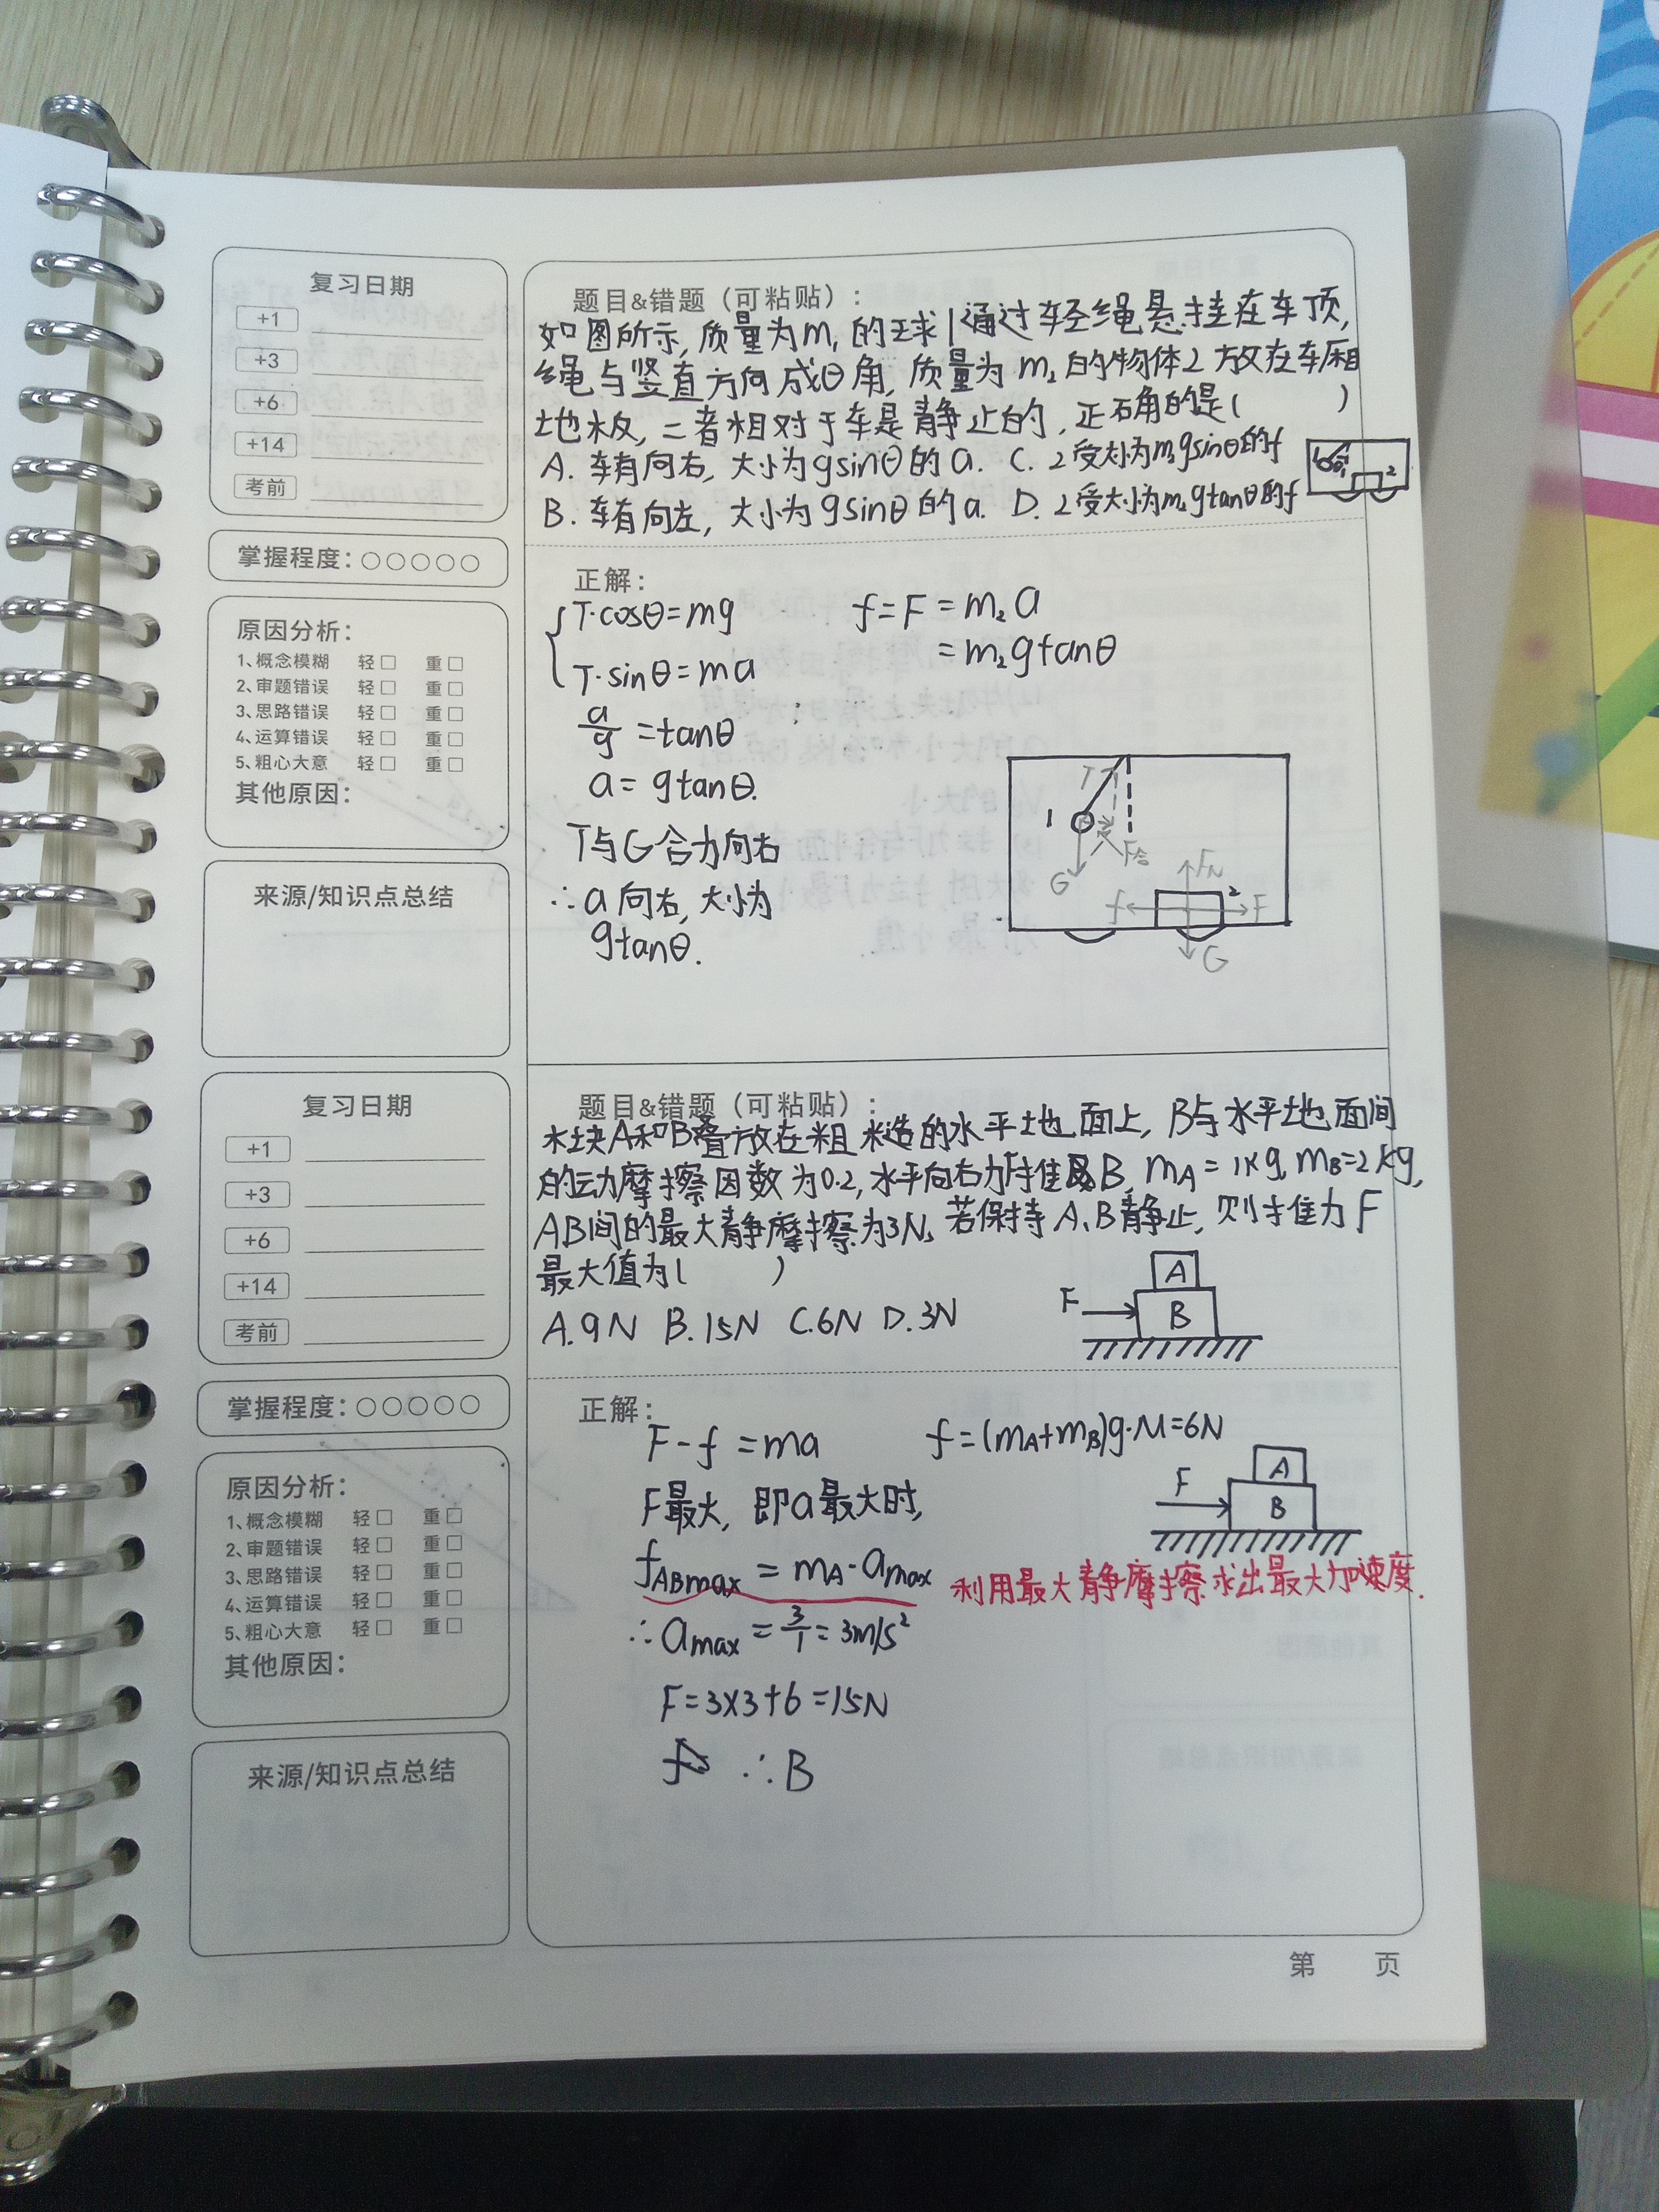 复习日期
+1
+3
+6
+14
考前
掌握程度：○○○○○
原因分析：
1、概念模糊 轻□ 重□
2、审题错误 轻□ 重□
3、思路错误 轻□ 重□
4、运算错误 轻□ 重□
5、粗心大意 轻□ 重□
其他原因：
来源/知识点总结
题目&错题（可粘贴）：
如图所示，质量为m₁的球1通过轻绳悬挂在车顶，
绳与竖直方向成θ角，质量为m₂的物体2放在车厢
地板，二者相对于车是静止的，正确的是（ ）
A. 车有向右，大小为gsinθ的a. C. 2受大小为m₂gsinθ的f
B. 车有向左，大小为gsinθ的a. D. 2受大小为m₂gtanθ的f
1 θ 2
正解：
T·cosθ=mg f=F=m₂a
T·sinθ=ma =m₂gtanθ
a/g=tanθ
a=gtanθ.
T与G合力向右
∴a向右，大小为
gtanθ.
T
1
F合
G
F_N
2
f F
G
复习日期
+1
+3
+6
+14
考前
掌握程度：○○○○○
原因分析：
1、概念模糊 轻□ 重□
2、审题错误 轻□ 重□
3、思路错误 轻□ 重□
4、运算错误 轻□ 重□
5、粗心大意 轻□ 重□
其他原因：
来源/知识点总结
题目&错题（可粘贴）：
木块A和B叠放在粗糙的水平地面上，B与水平地面间
的动摩擦因数为0.2，水平向右力F推B，m_A=1kg，m_B=2kg，
AB间的最大静摩擦为3N，若保持A、B静止，则推力F
最大值为（ ）
A.9N B.15N C.6N D.3N
F
A
B
正解：
F-f=ma f=(m_A+m_B)g·M=6N
F最大，即a最大时，
f_ABmax=m_A·a_max 利用最大静摩擦求出最大加速度.
∴a_max=3/1=3m/s²
F=3×3+6=15N
∴B
F
A
B
第 页